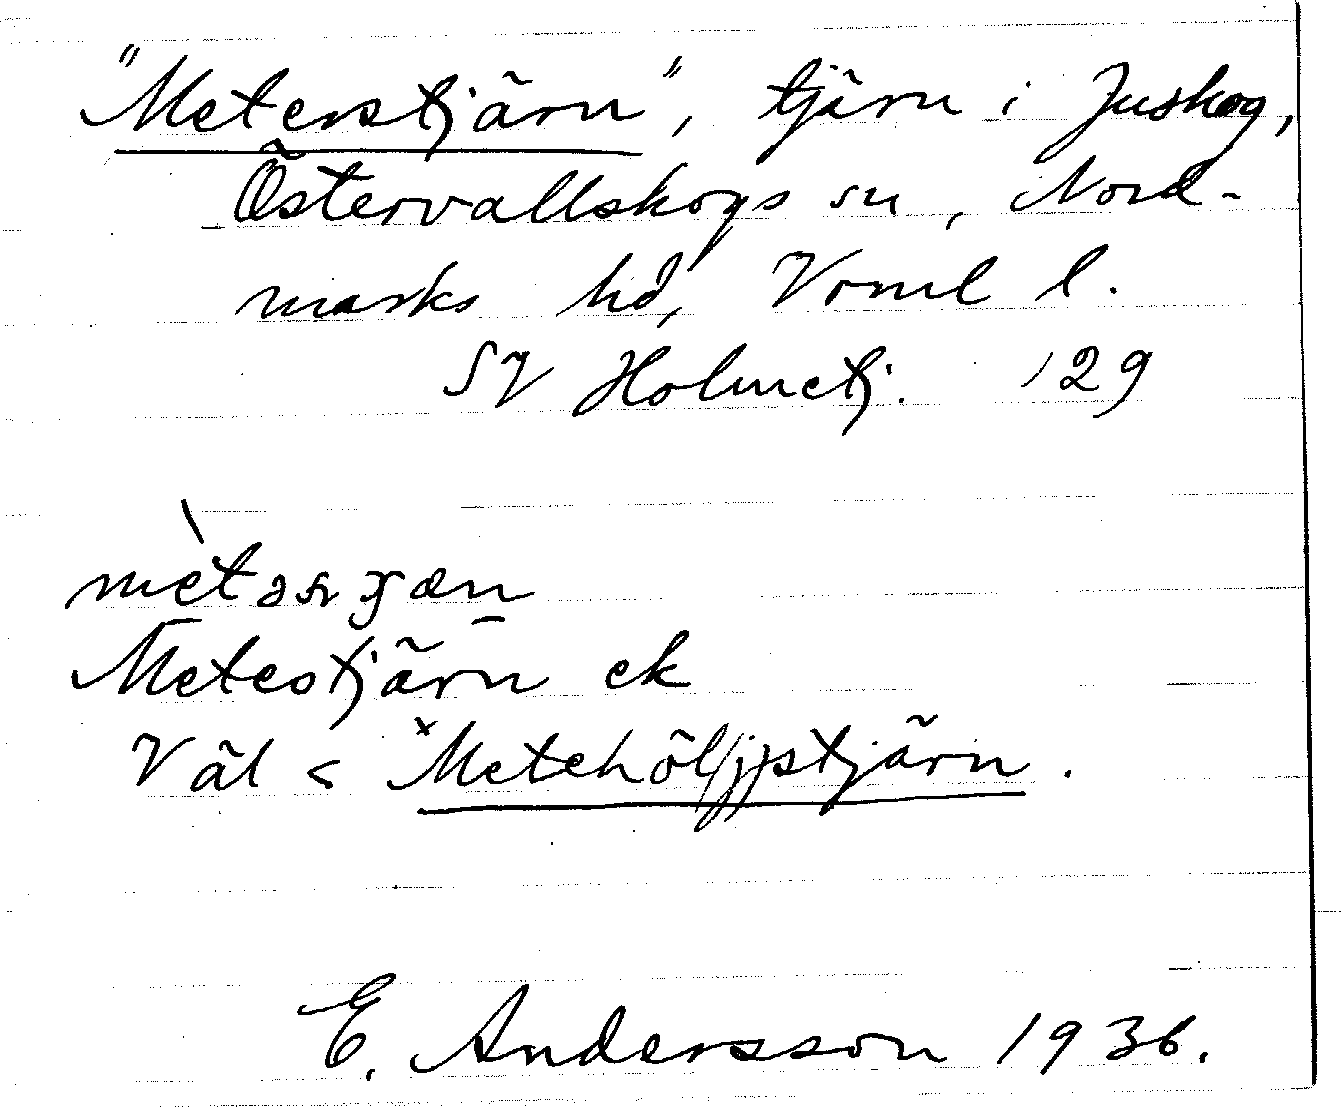 "Meterstjärn", tjärn i Juskog,
Östervallskogs sn, Nord-
marks hd, Vrml l.
SV Holmetj. 129
mètər
Metestjärn ek
Väl < *Metehöl(j)stjärn.
E. Andersson 1936.